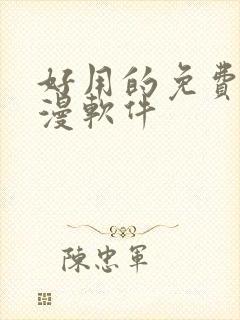 好用的免費
漫軟件
陳忠軍